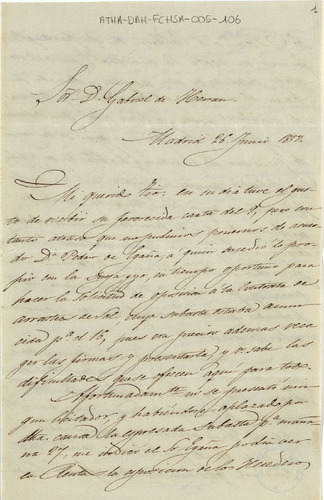 ATHA-DAH-FCHSA-005-106
1
Sor Dn Gabriel de Herran
Madrid 26 Junio 1857.
Mi querido Tio: en su dia tuve el gus-
to de recibir su favorecida carta del 9, pero con
tanto atraso que no pudimos ponernos de acuer-
do Dn Pedro de Egaña, á quien sucedió lo pro-
pio con la suya, y yo, en tiempo oportuno para
hacer la solicitud de oposicion á la Contrata de
arrastre de sal cuya subasta estaba anun-
ciada pa el 16, pues era preciso ademas reco-
ger las firmas y presentarla, y V. sabe las
dificultades que se ofrecen aqui para todo.
Afortunadamte no se presentó nin-
gun licitador, y habiendose aplazado por
dha. causa la espresada subasta pa maña-
na 27, me ofreció el Sr Egaña
en Renta la esposicion de los Herederos